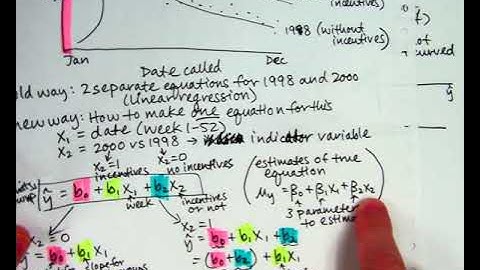 incentives)
1998 (without
incentives)
of
curved
ŷ
Jan
Dec
Date called
old way: 2 separate equations for 1998 and 2000
(linear regression)
new way: How to make one equation for this
x₁ = date (week 1-52)
x₂ = 2000 vs 1998 → indicator variable
x₂=1
incentives
x₂=0
no incentives
ŷ = b₀ + b₁x₁ + b₂x₂
week
incentives
or not
(estimates of true
equation
μy = β₀ + β₁x₁ + β₂x₂
3 parameters
to estimate
x₂ = 0
ŷ = b₀ + b₁x₁
slope for
x₂ = 1
ŷ = b₀ + b₁x₁ + b₂
= (b₀ + b₂) + b₁x₁